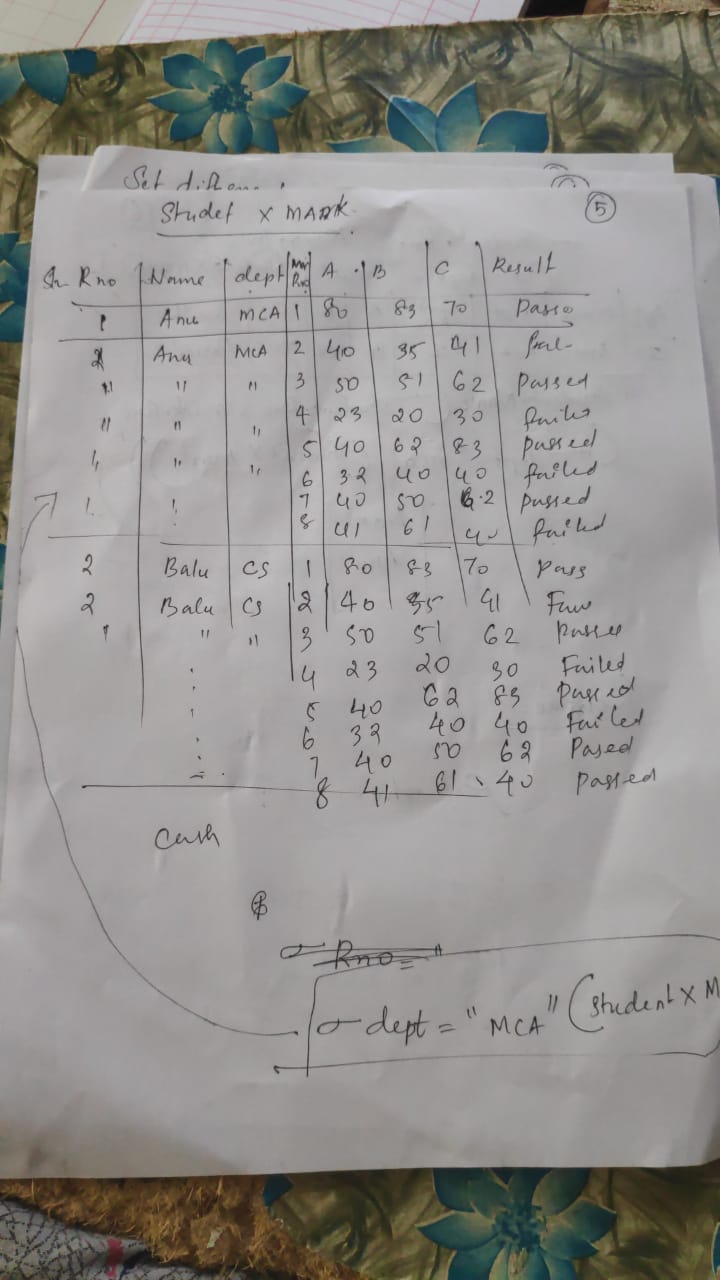 Set diff
Studet X MARK
5
St Rno Name dept Mar Rno A B C Result
1 Anu MCA 1 80 83 70 Passo
2 Anu MCA 2 40 35 41 fail
" " " 3 50 51 62 passed
" " " 4 23 20 30 failed
" " " 5 40 62 83 passed
6 32 40 40 failed
7 40 50 6.2 passed
8 41 61 40 failed
2 Balu CS 1 80 83 70 pass
2 Balu CS 2 40 35 41
" " 3 50 51 62 Passed
4 23 20 30 Failed
5 40 62 83 passed
6 32 40 40 Failed
7 40 50 62 Pased
8 41 61 40 passed
Cash
σ Rno = "
σ dept = " MCA " (student X M